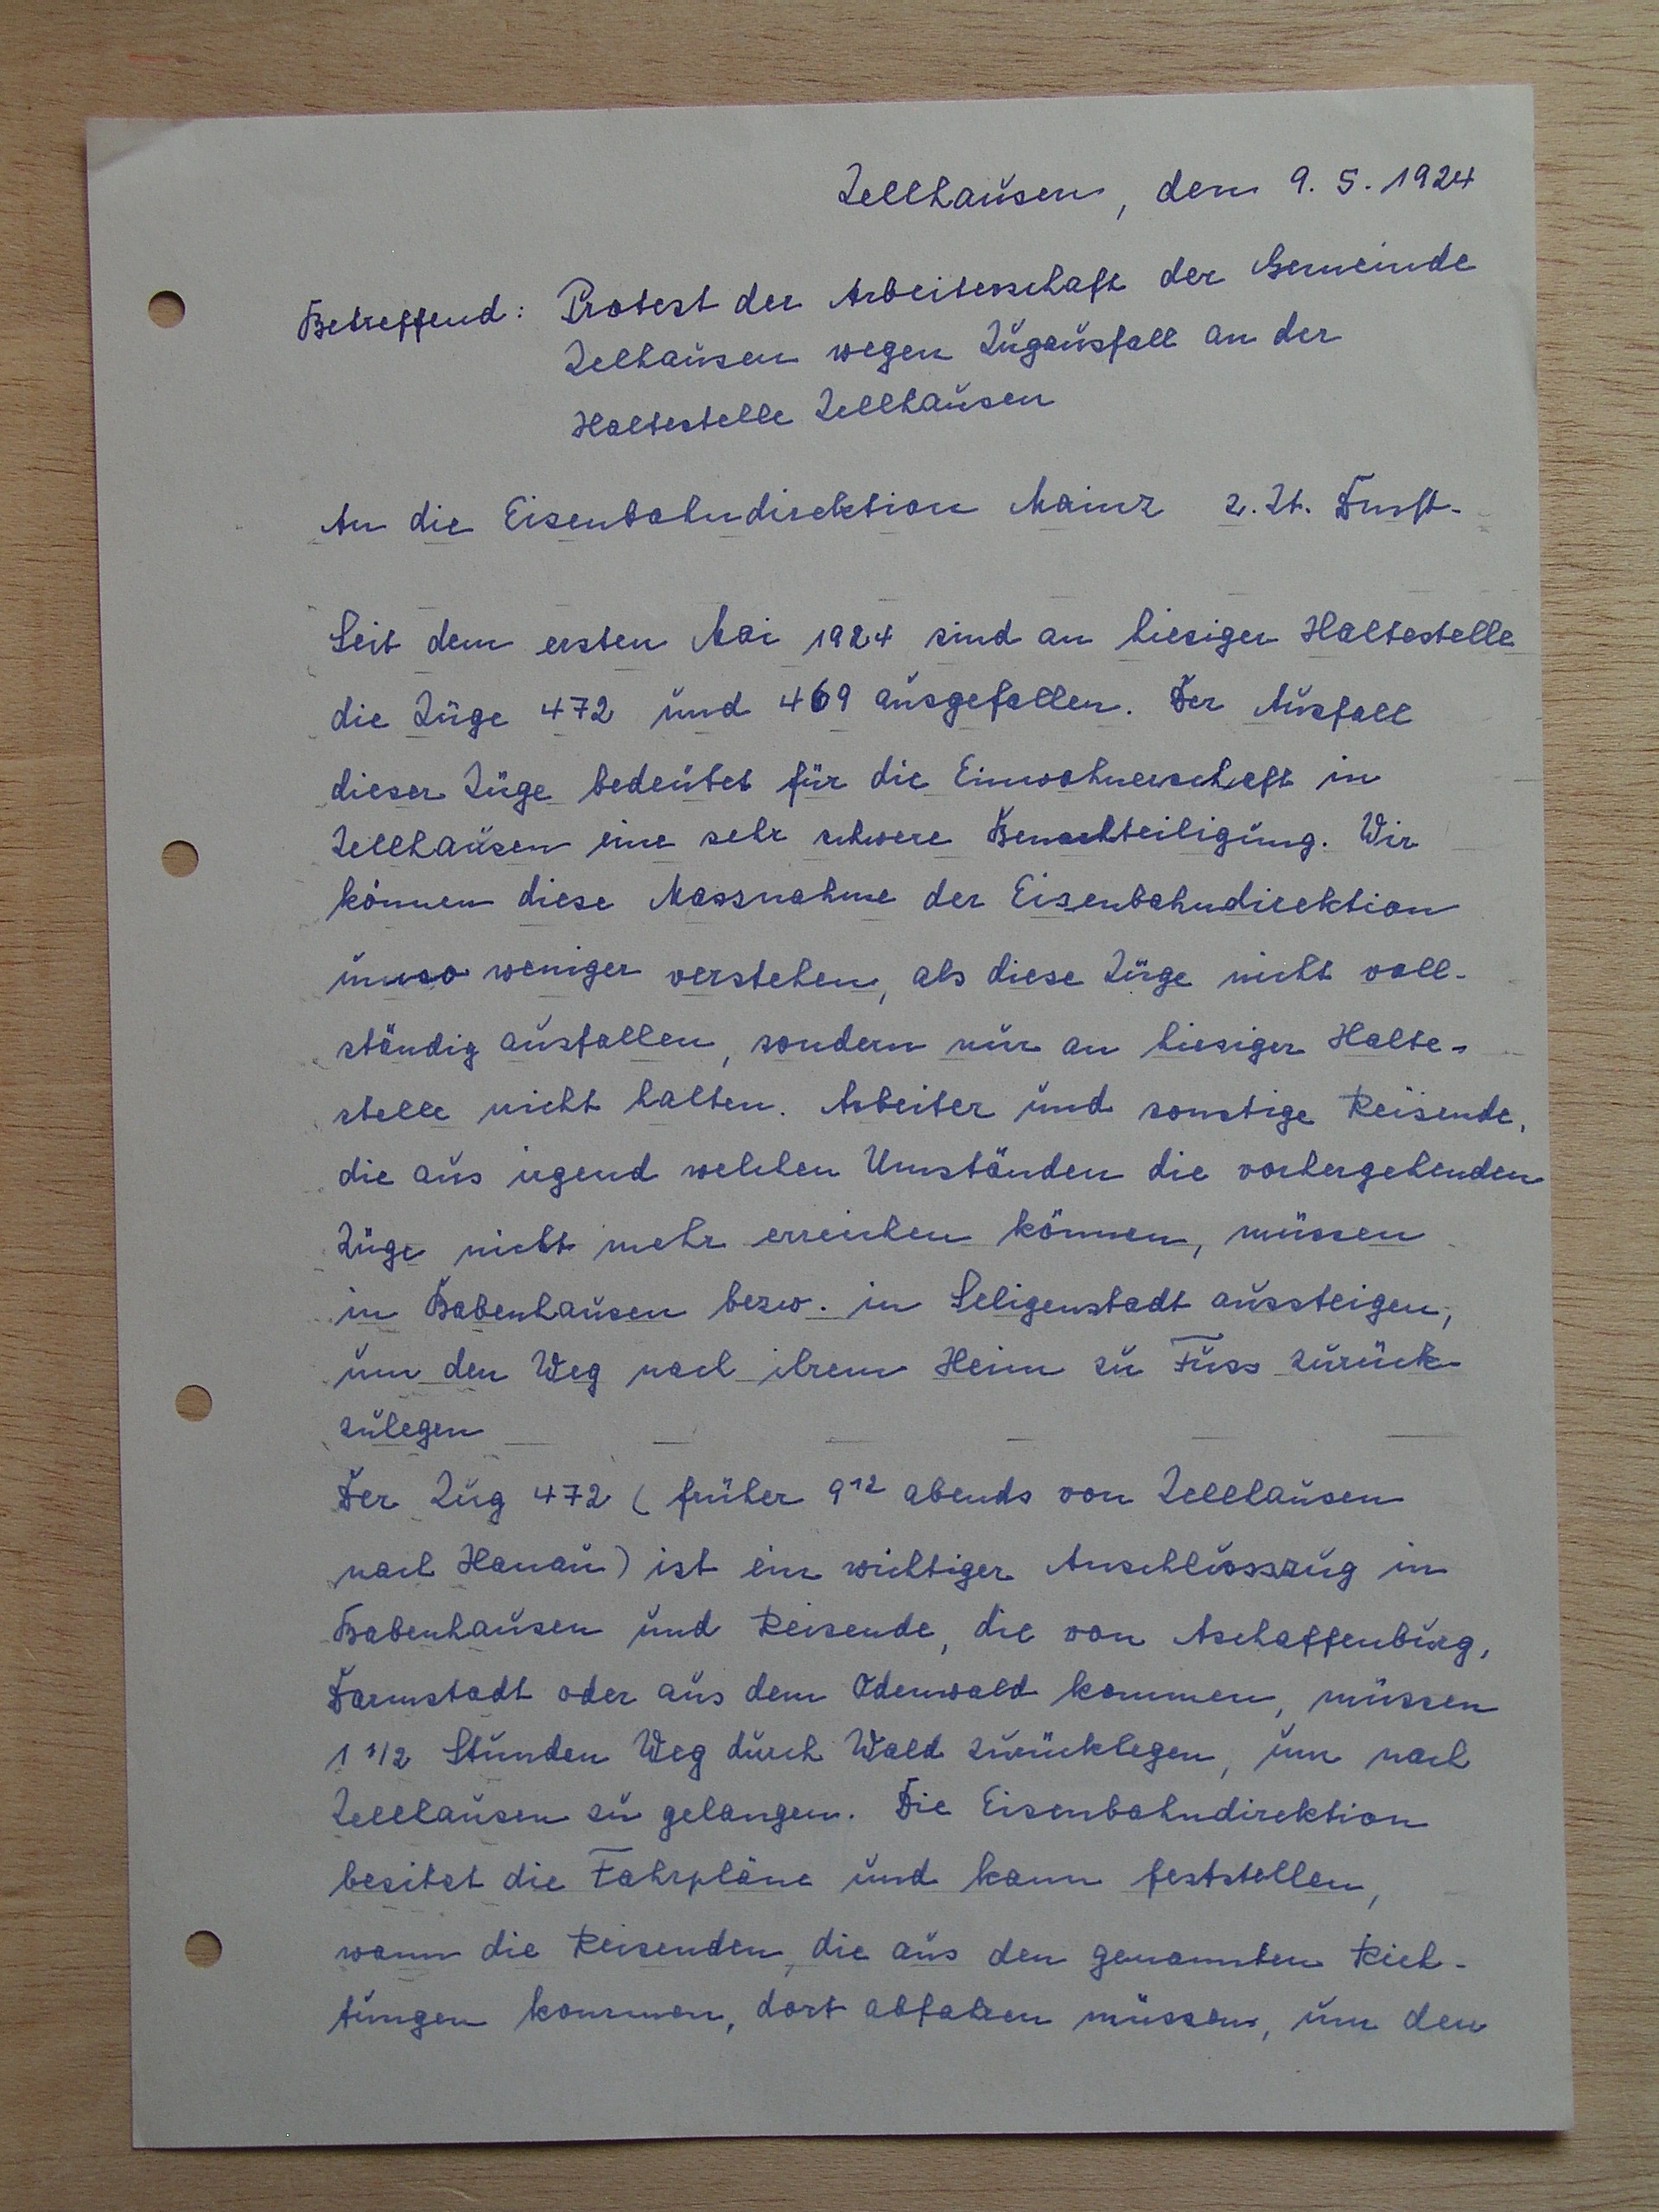 Zellhausen, den 9. 5. 1924
Betreffend: Protest der Arbeiterschaft der Gemeinde
Zellhausen wegen Zugausfall an der
Haltestelle Zellhausen
An die Eisenbahndirektion Mainz z. Zt.
Seit dem ersten Mai 1924 sind an hiesiger Haltestelle
die Züge 472 und 469 ausgefallen. Der Ausfall
dieser Züge bedeutet für die Einwohnerschaft in
Zellhausen eine sehr schwere Benachteiligung. Wir
können diese Massnahme der Eisenbahndirektion
umso weniger verstehen, als diese Züge nicht voll-
ständig ausfallen, sondern nur an hiesiger Halte-
stelle nicht halten. Arbeiter und sonstige Reisende,
die aus irgend welchen Umständen die vorhergehenden
Züge nicht mehr erreichen können, müssen
in Babenhausen bezw. in Seligenstadt aussteigen,
um den Weg nach ihrem Heim zu Fuss zurück-
zulegen
Der Zug 472 ( früher 9¹² abends von Zellhausen
nach Hanau) ist ein wichtiger Anschlusszug in
Babenhausen und Reisende, die von Aschaffenburg,
Darmstadt oder aus dem Odenwald kommen, müssen
1 1/2 Stunden Weg durch Wald zurücklegen, um nach
Zellhausen zu gelangen. Die Eisenbahndirektion
besitzt die Fahrpläne und kann feststellen,
wann die Reisenden, die aus den genannten Rich-
tungen kommen, dort abfahren müssen, um den